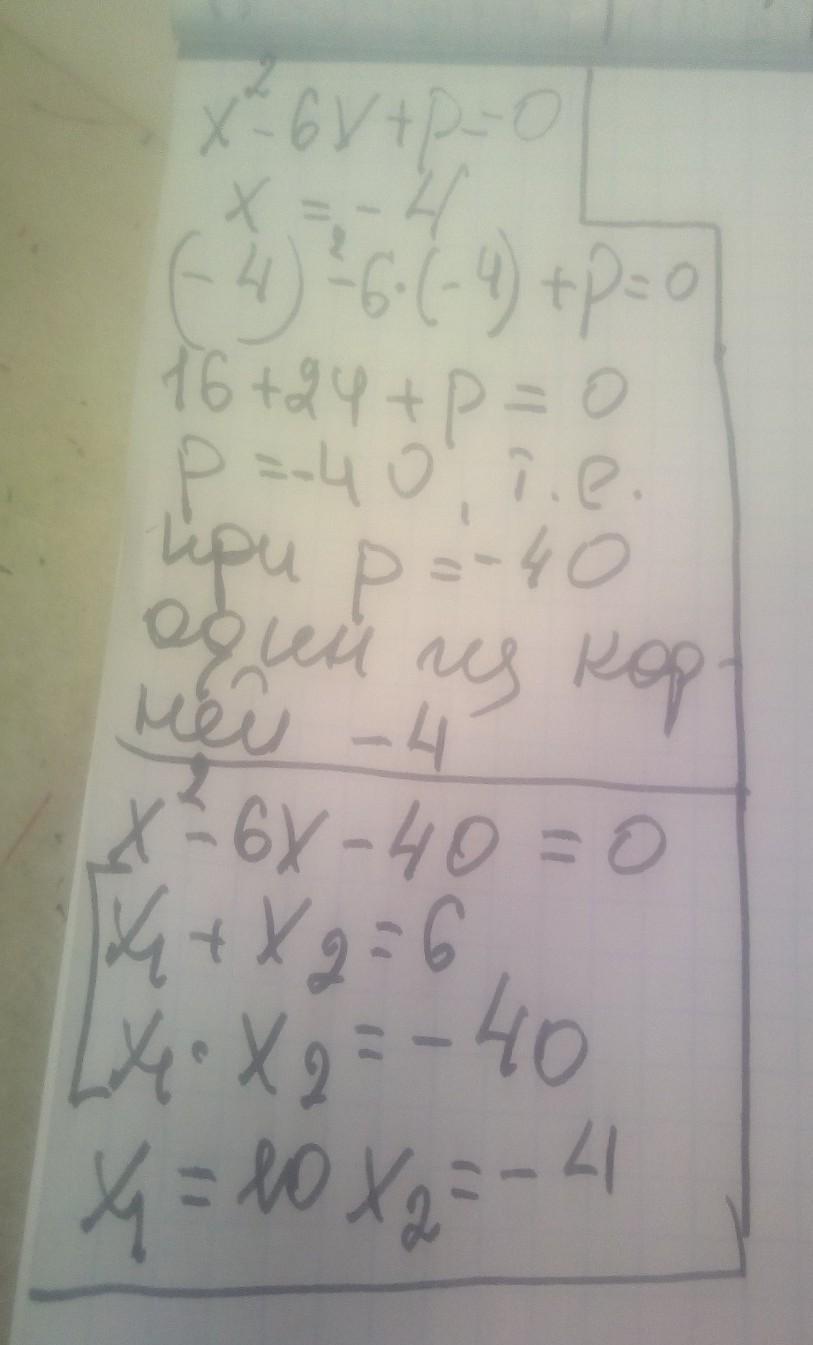 x² - 6x + p = 0
x = -4
(-4)² - 6·(-4) + p = 0
16 + 24 + p = 0
p = -40, т.е.
при p = -40
один из кор-
ней -4
x² - 6x - 40 = 0
x₁ + x₂ = 6
x₁ · x₂ = -40
x₁ = 10 x₂ = -4